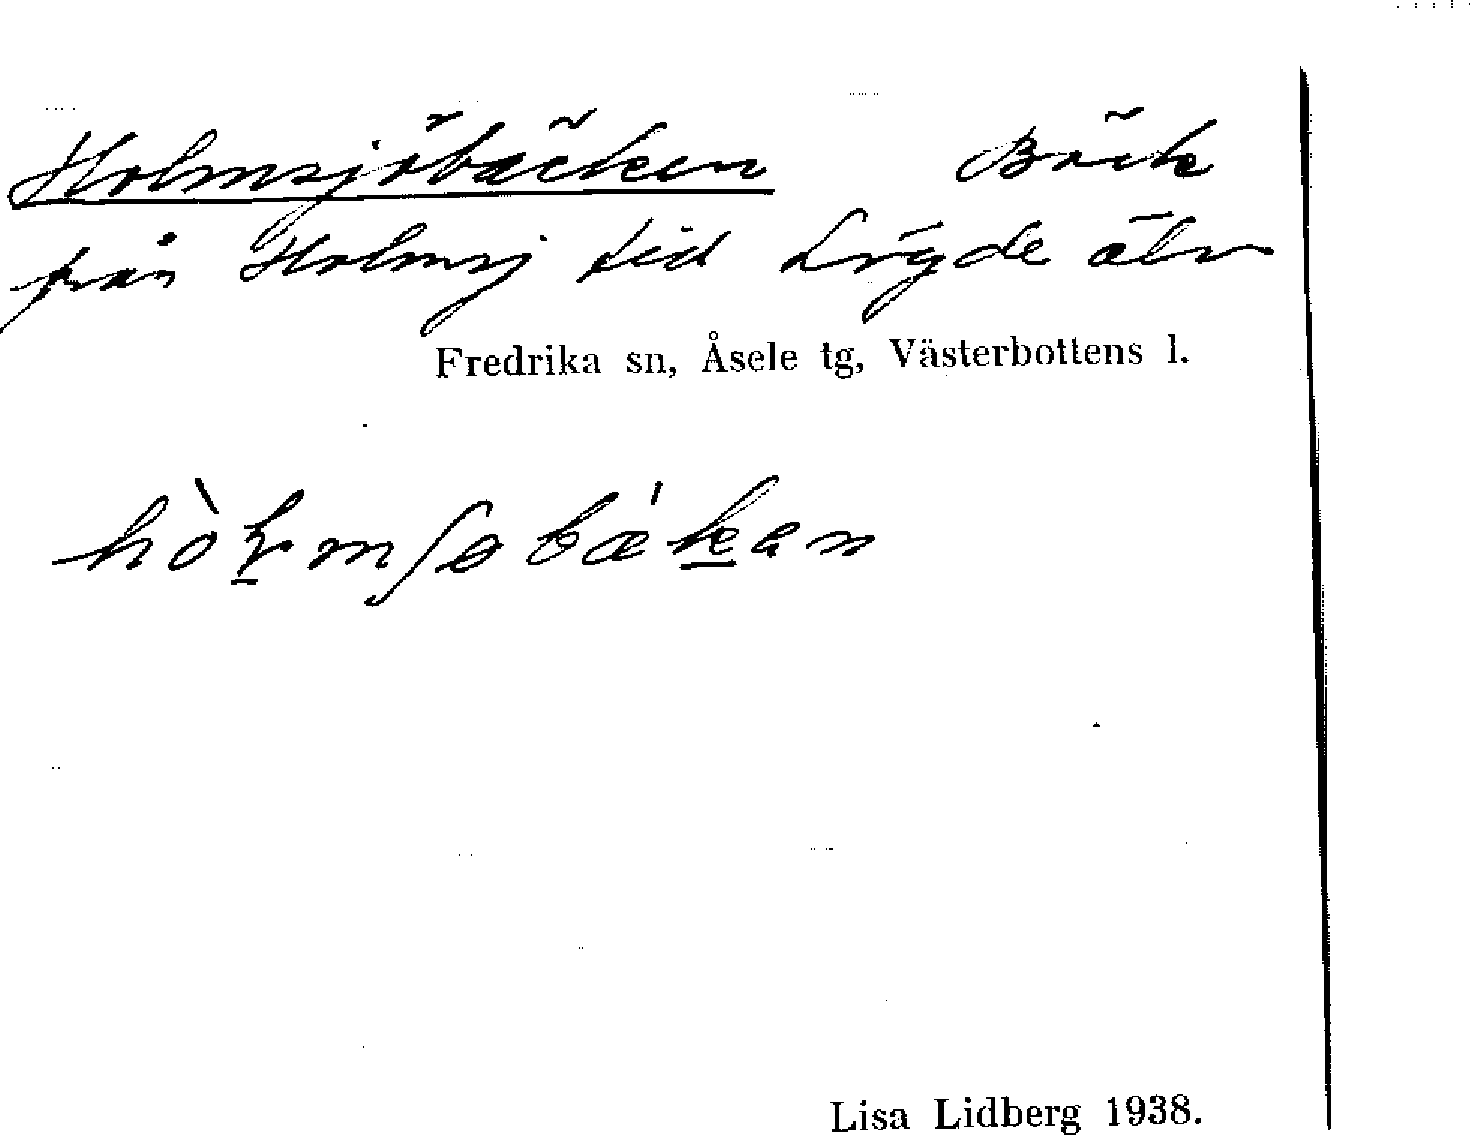 Holmsjöbäcken Bäck
från Holmsj till Lögde älv
Fredrika sn, Åsele tg, Västerbottens l.
Lisa Lidberg 1938.